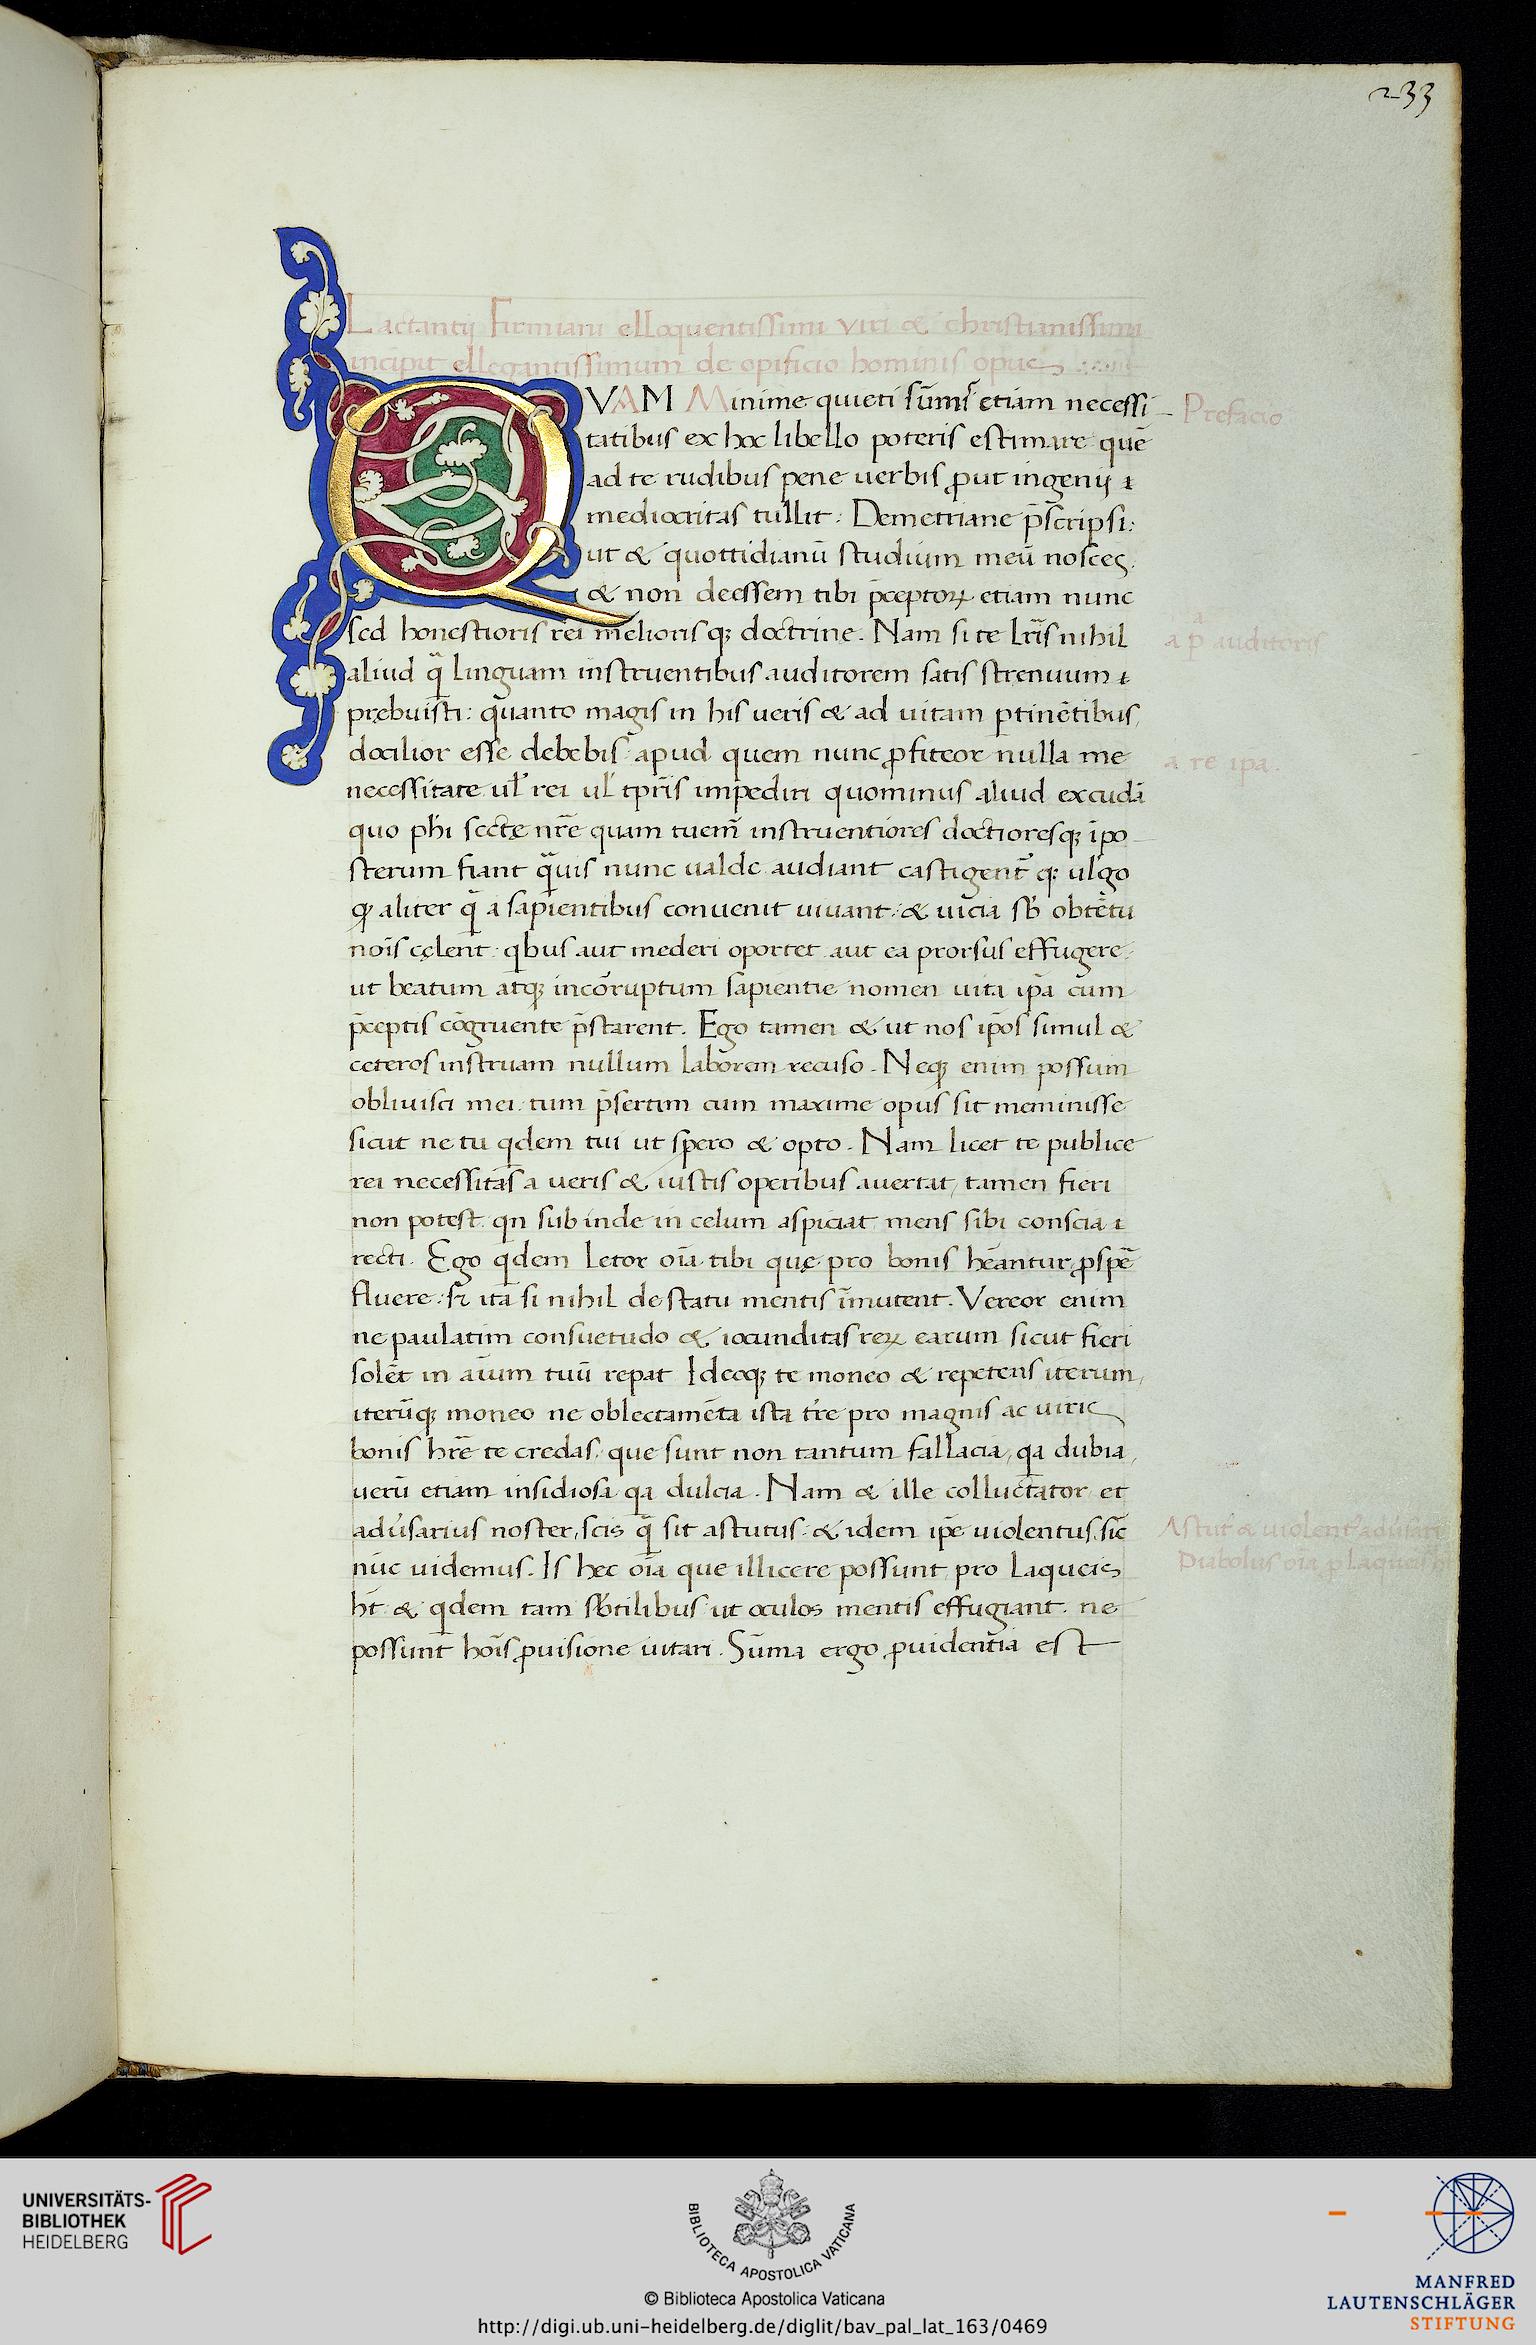 233
Lactantij Firmiani elloquentissimi viri & christianissimi
incipit ellegantissimum de opificio hominis opus
QVAM Minime quieti sūmſ etiam necessi
Prefacio
tatibus ex hoc libello poteris estimare quē
ad te rudibus pene uerbis ꝓut ingenij
mediocritas tullit: Demetriane p̄scripsi:
ut & quottidianū studium meū nosces
& non deessem tibi p̄ceptoꝝ etiam nunc
sed honestioris rei meliorisqꝫ doctrine. Nam si te lr̄is nihil
a p̲ auditoris
aliud q̄ linguam instruentibus auditorem satis strenuum
prębuisti: quanto magis in his ueris & ad uitam ꝑtinētibus
docilior esse debebis apud quem nunc ꝓfiteor nulla me
a re ipa.
necessitate ul' rei ul' tpr̄is impediri quominus aliud excudā
quo phi sectę nr̄e quam tuem̄ instruentiores doctioresqꝫ ī po
sterum fiant q̄uis nunc ualde audiant castigent̄ qꝫ ulgo
ꝙ aliter q̄ a sapientibus conuenit uiuant: & uicia sb' obtētu
nōis cęlent: qbus aut mederi oportet aut ea prorsus effugere
ut beatum atqꝫ incōruptum sapientie nomen uita ip̄a cum
p̄ceptis cōgruente p̄starent. Ego tamen & ut nos ip̄os simul &
ceteros instruam nullum laborem recuso. Neqꝫ enim possum
obliuisci mei tum p̄sertim cum maxime opus sit meminisse
sicut ne tu qdem tui ut spero & opto. Nam licet te publice
rei necessitas a ueris & iustis operibus auertat, tamen fieri
non potest qn sub inde in celum aspiciat mens sibi conscia
recti. Ego qdem letor oīa tibi quę pro bonis hēantur ꝓspē
fluere: sꝫ ita si nihil de statu mentis īmutent. Vereor enim
ne paulatim consuetudo & iocunditas reꝝ earum sicut fieri
solēt in aīum tuū repat Ideoqꝫ te moneo & repetens iterum,
iterūqꝫ moneo ne oblectamēta ista tr̄e pro magnis ac uiris
bonis hr̄e te credas, que sunt non tantum fallacia, qa dubia,
uerū etiam insidiosa qa dulcia. Nam & ille colluctator et
adu̓sarius noster, scis q̄ sit astutus & idem ip̄e uiolentus, sic̄
Astut' & uiolent' adu̓sari
nūc uidemus. Is hec oīa que illicere possunt pro laqueis
Diabolus oīa ꝓ laqueis h
ht̄ & qdem tam sb'tilibus ut oculos mentis effugiant. ne
possunt hoīs ꝓuisione uitari. Sūma ergo ꝓuidentia est
UNIVERSITÄTS-
BIBLIOTHEK
HEIDELBERG
BIBLIOTECA APOSTOLICA VATICANA
© Biblioteca Apostolica Vaticana
http://digi.ub.uni-heidelberg.de/diglit/bav_pal_lat_163/0469
MANFRED
LAUTENSCHLÄGER
STIFTUNG